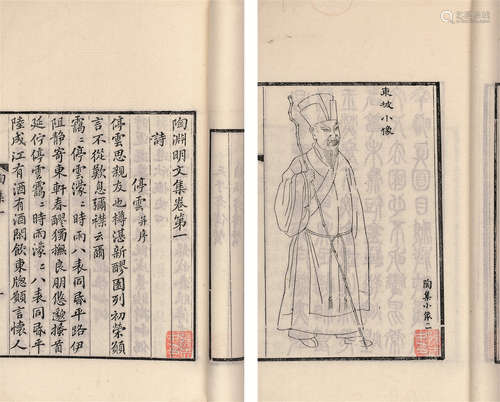 陶淵明文集卷第一
詩
停雲 并序
停雲思親友也樽湛新醪園列初榮願
言不從歎息彌襟云爾
靄〻停雲濛〻時雨八表同昏平路伊
阻靜寄東軒春醪獨撫良朋悠邈搔首
延佇停雲靄〻時雨濛〻八表同昏平
陸成江有酒有酒閒飲東牕願言懷人
陶集一
東坡小像
陶集小像二